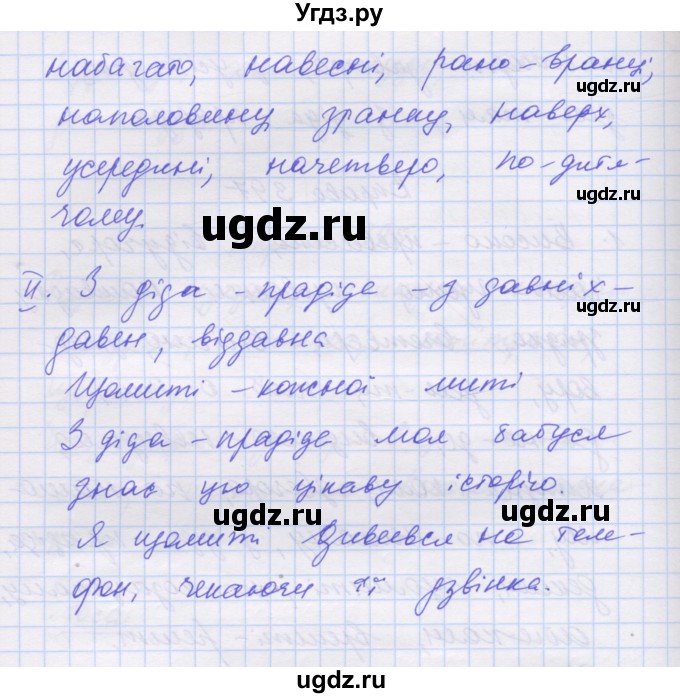 Угдз.ру
набагато, навесні, рано-вранці,
наполовину, зранку, наверх,
усередині, начетверо, по-дитя-
чому.
gdz.ru
ugdz.ru
ugdz.ru
ІІ. З діда-прадіда - з давніх-
давен, віддавна
Щомиті - кожної миті
З діда-прадіда моя бабуся
знає цю цікаву історію.
ugdz.ru
ugdz.ru
Я щомиті дивився на теле-
фон, чекаючи її дзвінка.
ugdz.ru